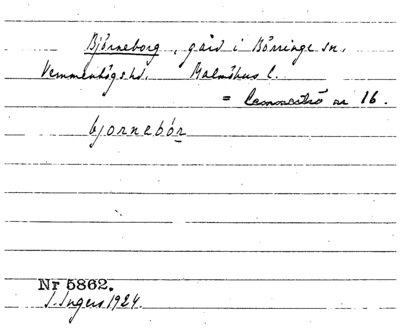 Björneborg, gård i Börringe sn.
Vemmenhögs hd. Malmöhus l.
= Lemmeströ nr 16.
bjornebór
Nr 5862.
I. Ingers 1924.